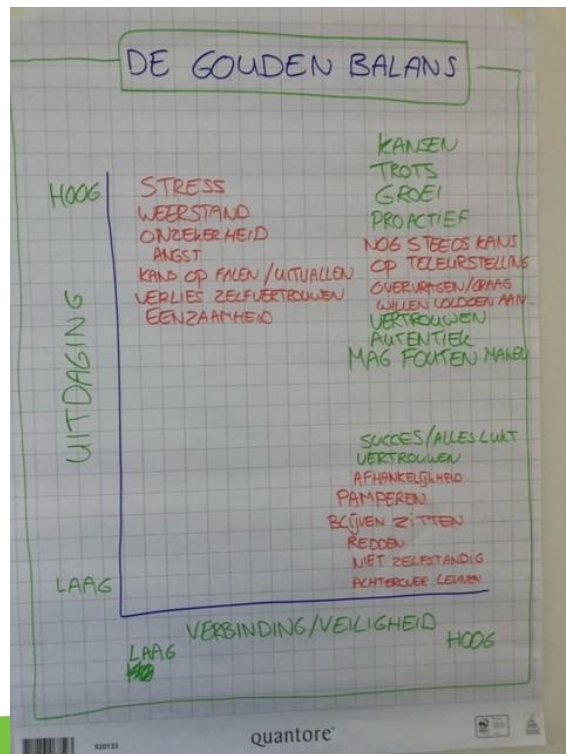 DE GOUDEN BALANS
HOOG
UITDAGING
LAAG
STRESS
WEERSTAND
ONZEKERHEID
ANGST
KANS OP FALEN/UITVALLEN
VERLIES ZELFVERTROUWEN
EENZAAMHEID
KANSEN
TROTS
GROEI
PROACTIEF
NOG STEEDS KANS
OP TELEURSTELLING
OVERVRAGEN/GRAAG
WILLEN VOLDOEN AAN..
VERTROUWEN
AUTENTIEK
MAG FOUTEN MAKEN
SUCCES/ALLES LUKT
VERTROUWEN
AFHANKELIJKHEID
PAMPEREN
BLIJVEN ZITTEN
REDDEN
NIET ZELFSTANDIG
ACHTEROVER LEUNEN
VERBINDING/VEILIGHEID
LAAG
HOOG
920133
quantore